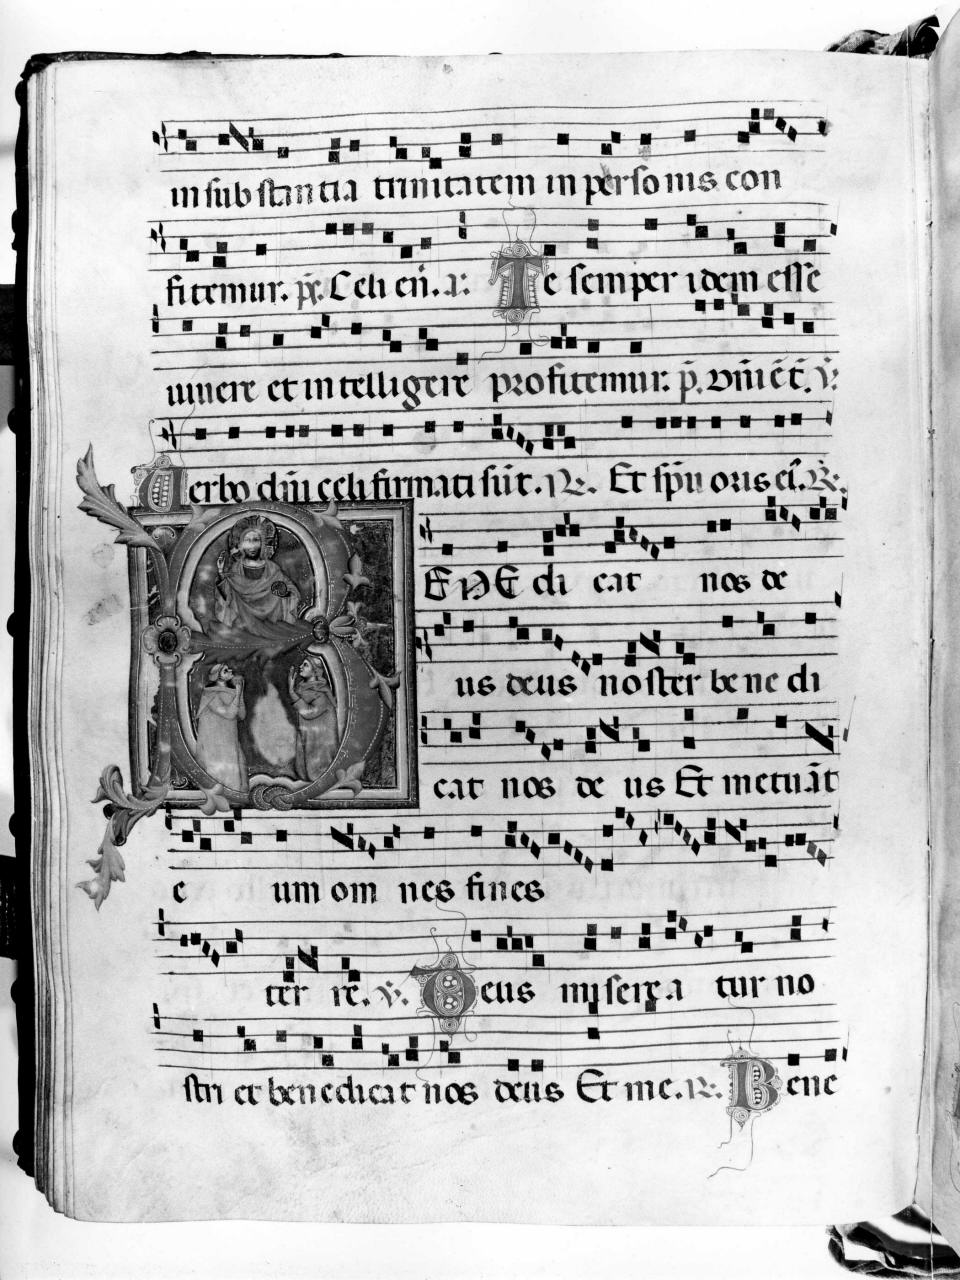 in sub stan ti a trinitatem in perso nis con
fitemur. p̄. Celi en̄. ℟. Te semper idem esse
uiuere et in telligere profitemur. p̄. Vn̄i c̄t̄. ℣.
Uerbo dn̄i celi firmati sūt. ℟. Et sp̄u oris ei. ℟.
BENEdi cat nos de
us deus noster bene di
cat nos de us Et metuāt
e um om nes fines
ter re. ℣. Deus misere a tur no
stri et benedicat nos deus Et me. ℟. Bene